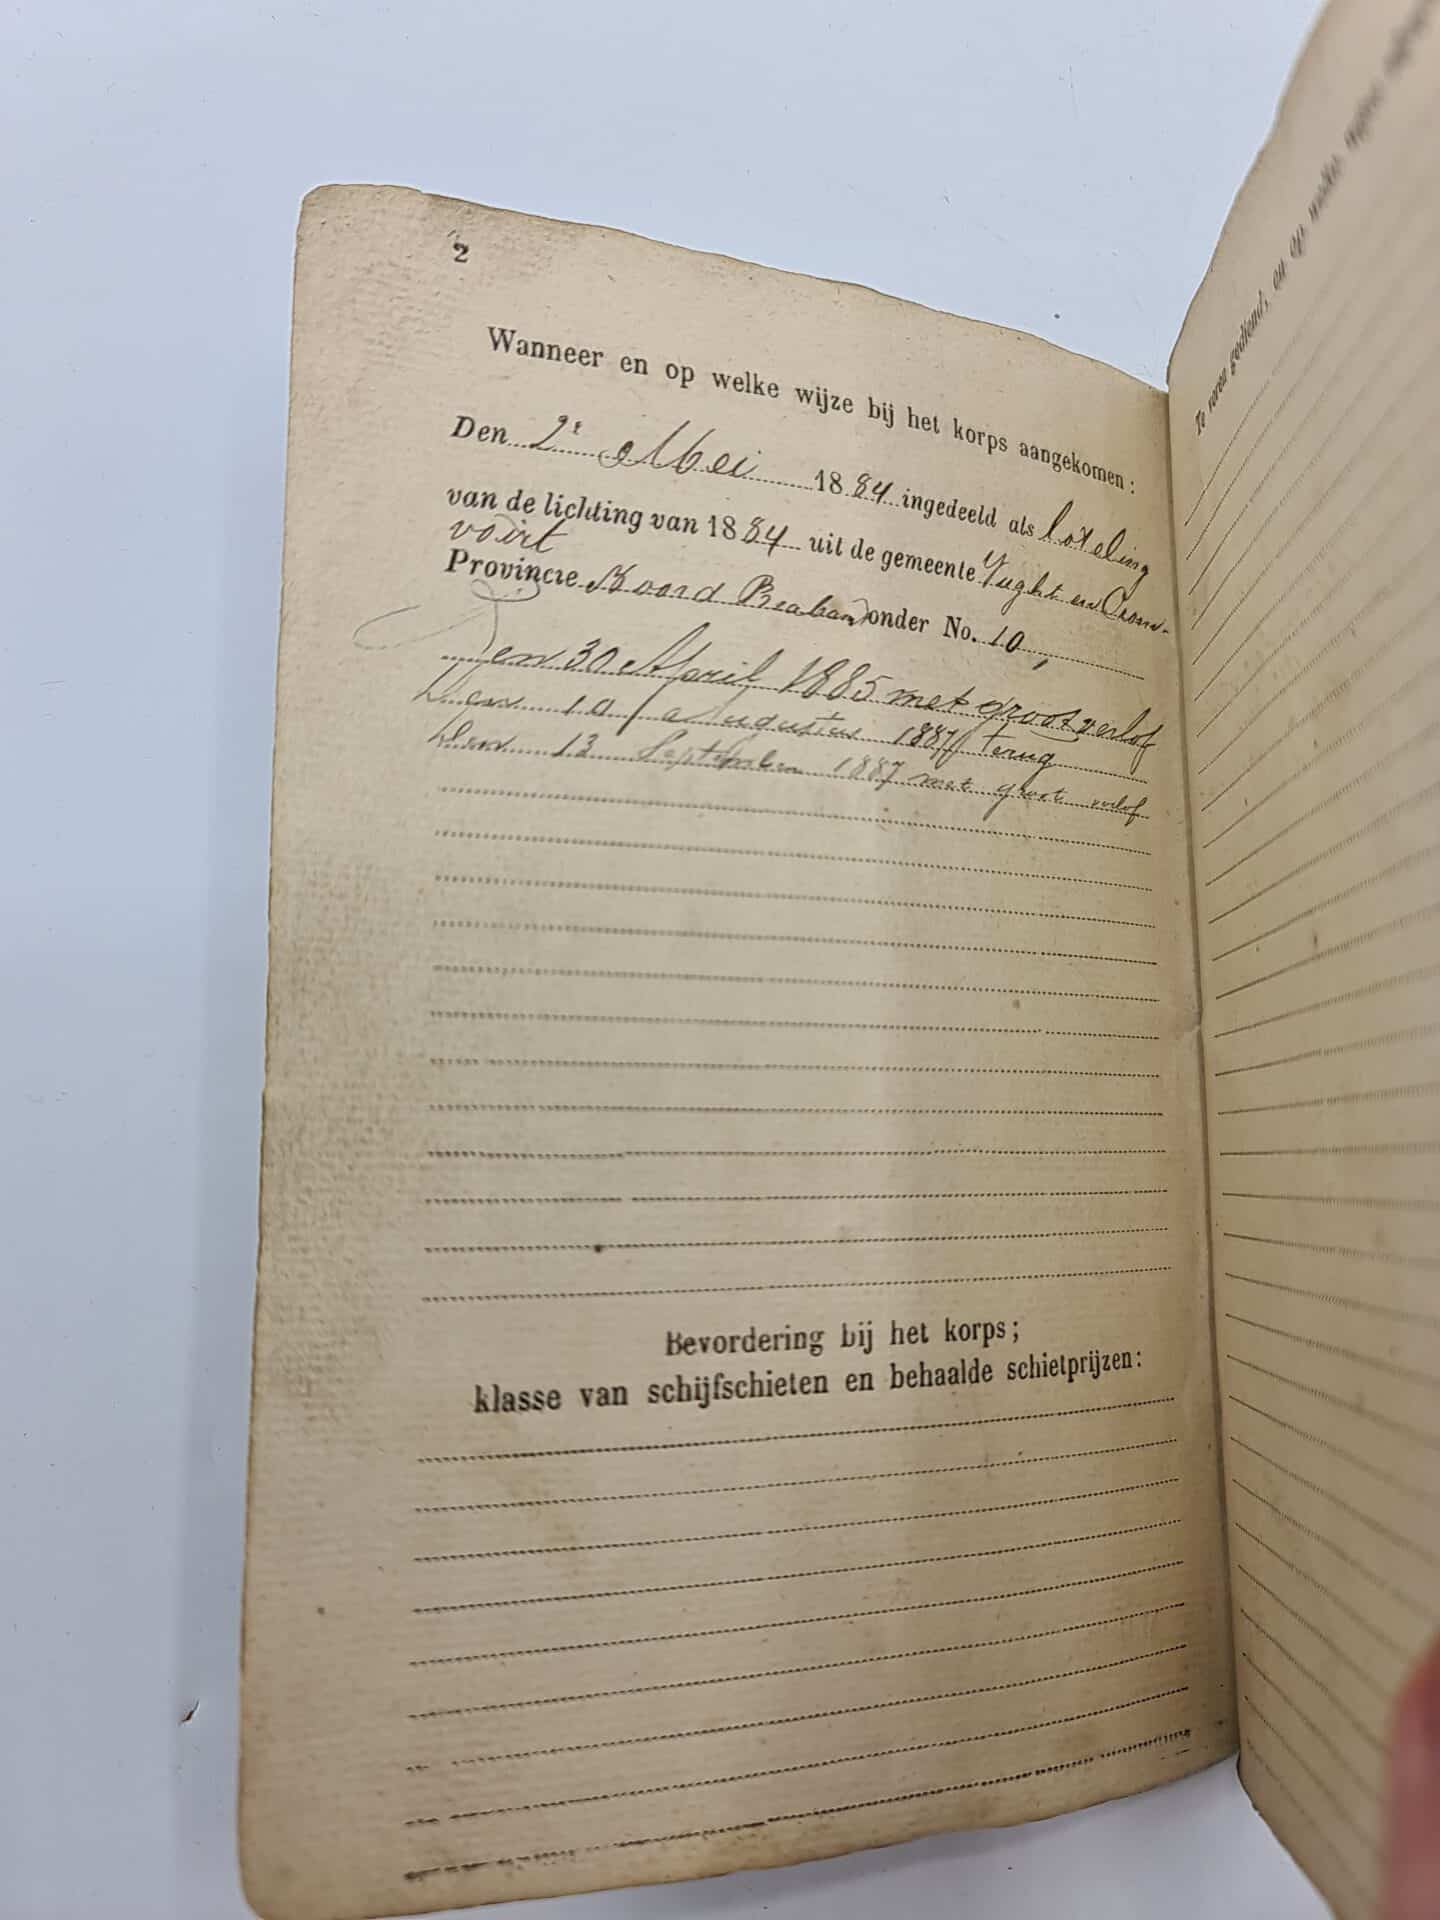 2
Wanneer en op welke wijze bij het korps aangekomen:
Den 2e Mei 1884 ingedeeld als loteling
van de lichting van 1884 uit de gemeente Vught en Crom-
voirt
Provincie Noord Braband onder No. 10,
Den 30 April 1885 met groot verlof
Den 10 Augustus 1887 terug
Den 13 September 1887 met groot verlof
Bevordering bij het korps;
klasse van schijfschieten en behaalde schietprijzen:
Te voren gediend, en op welke wijze